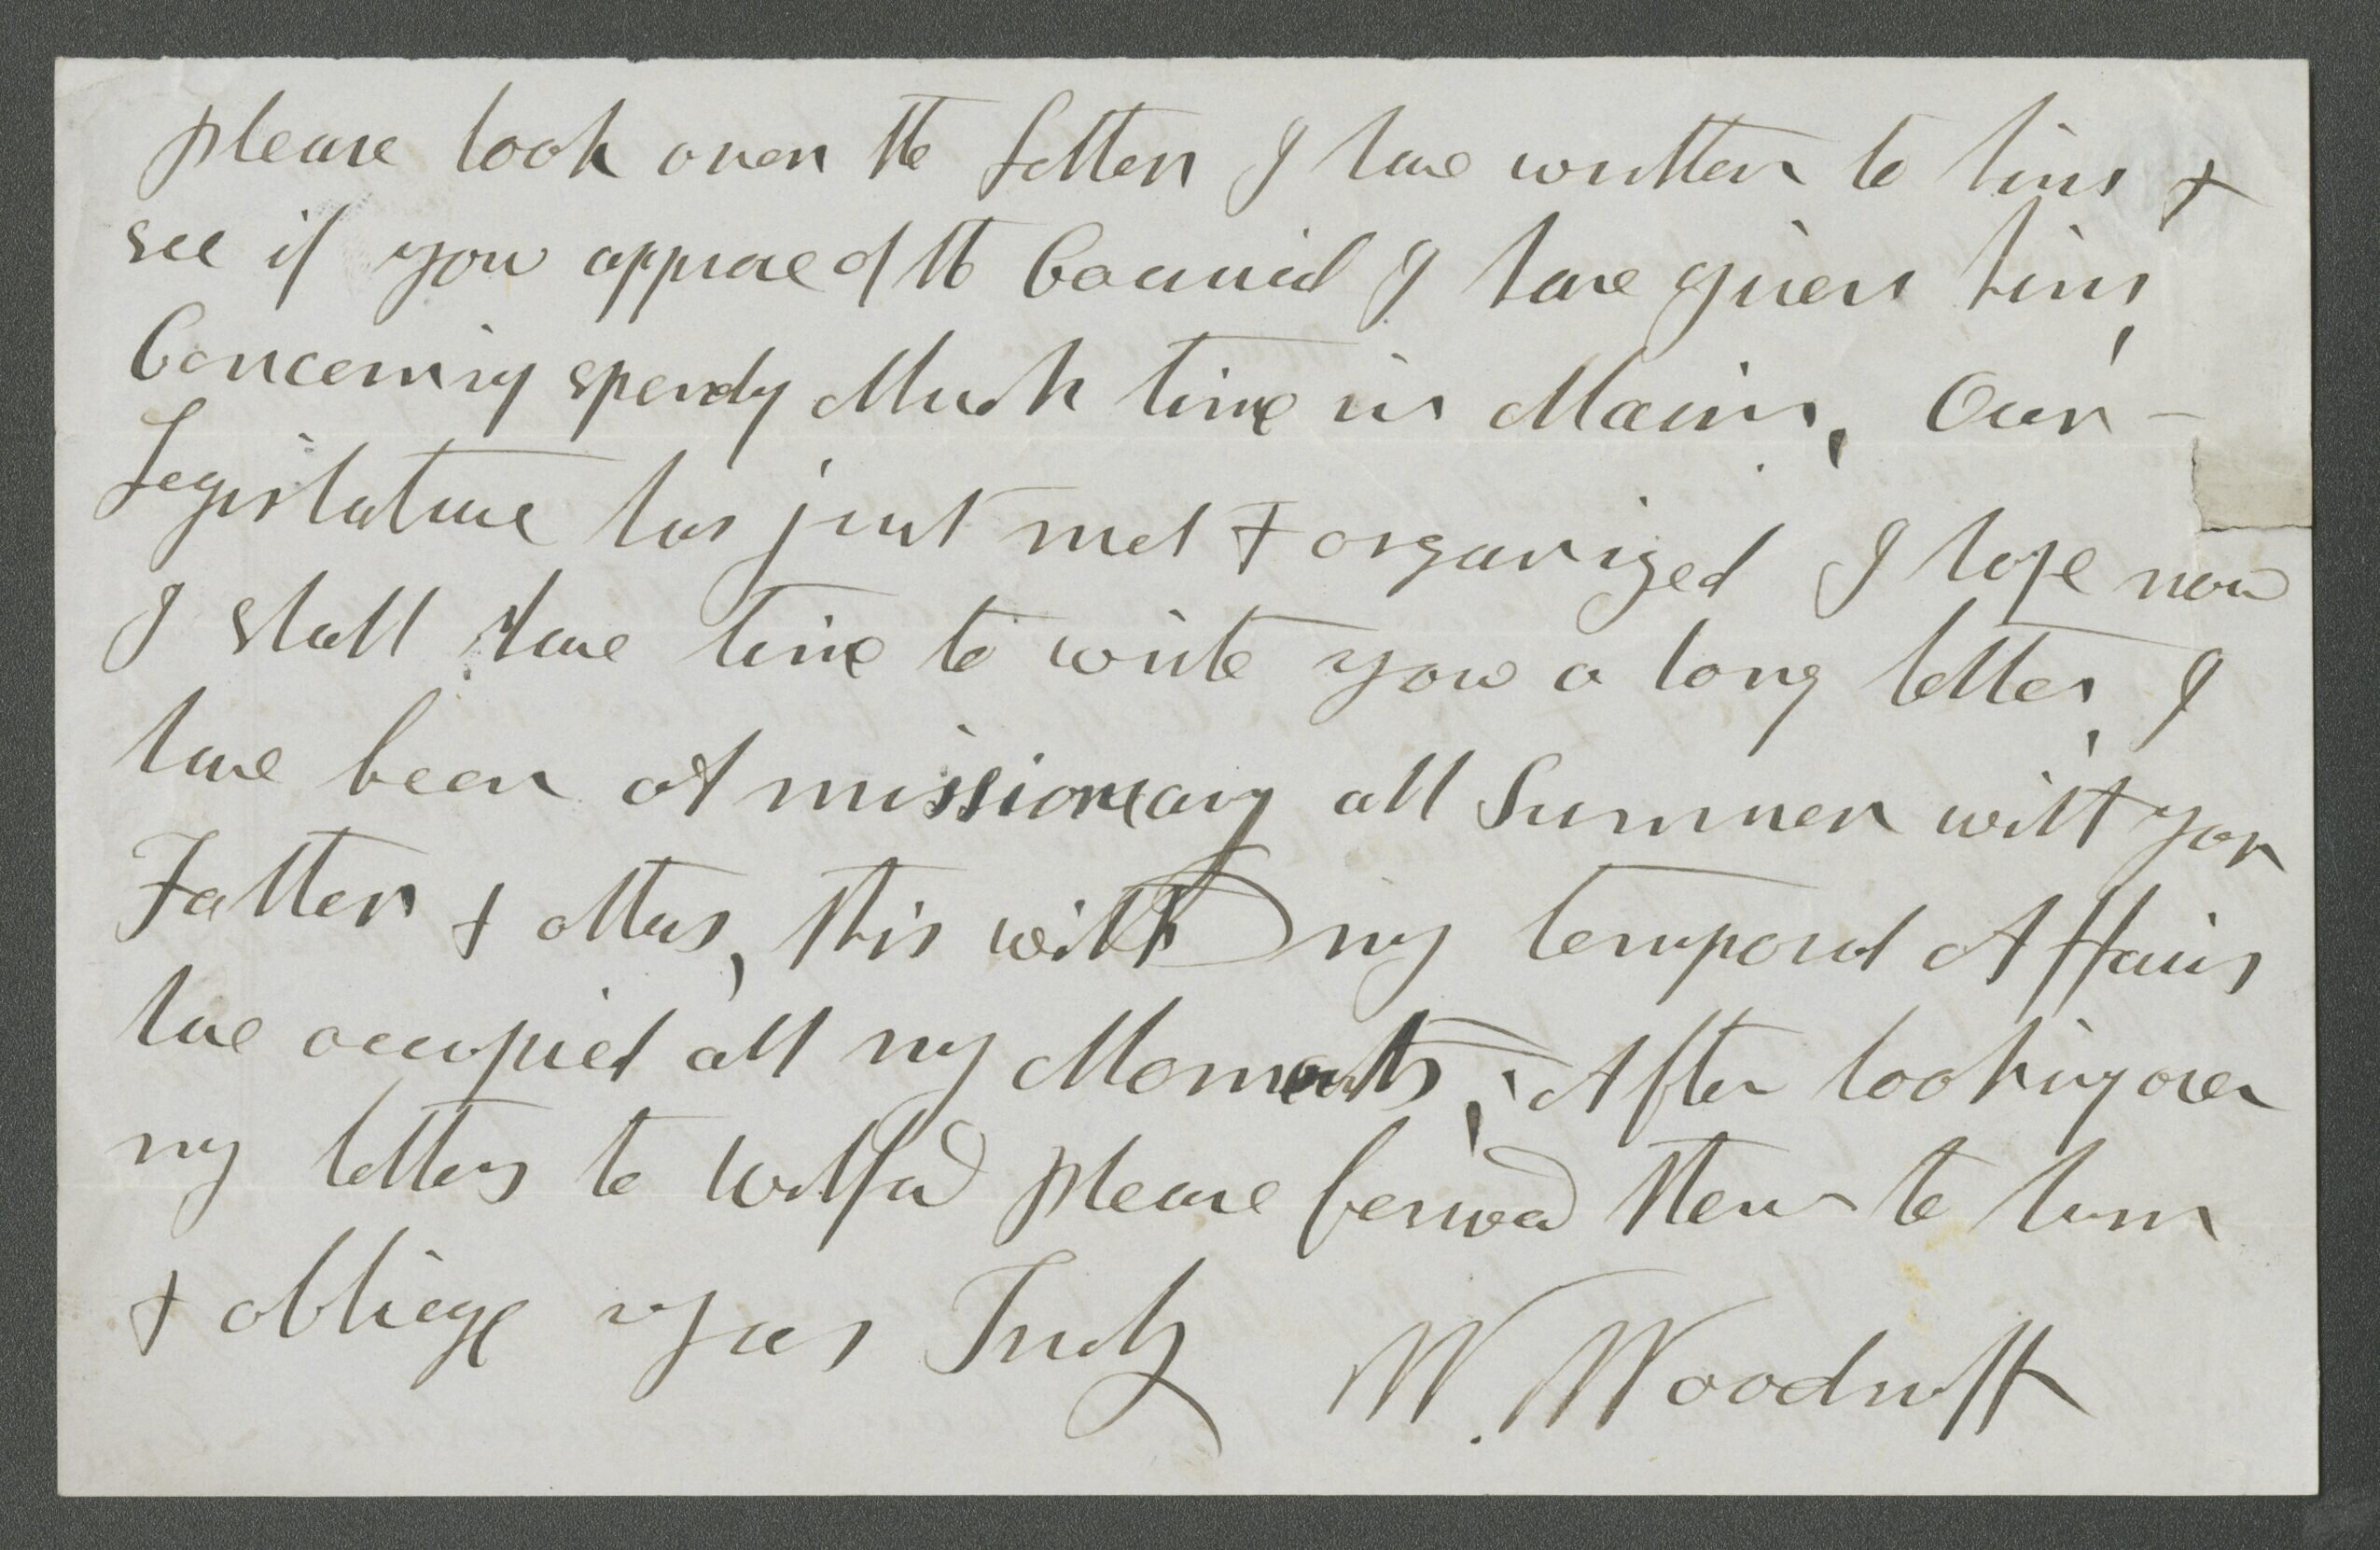 please look over the Letter I have written to him &
see if you approve of the Council I have given him,
Concerning spendg Much time in Main, Our -
Legislature has just met & organized I hope now
I shall have time to write you a long letter, I
have been A missionary all Summer with your
Father & others, this with my temporal Affairs
have occupied all my Moments, After looking over
my letters to Wilford please forward them to him
& obliege yours Truly W. Woodruff